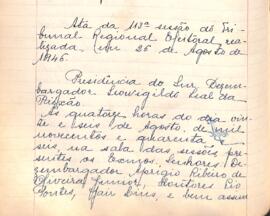 Ata da 113ª sessão do Tri-
bunal Regional Eleitoral rea-
lizada em 26 de Agosto de
1946.
Presidência do Snr. Desem-
bargador Leovegildo Leal da
Paixão
As quatorze horas do dia vin-
te e seis de Agosto, de mil
novecentos e quarenta e
seis, na sala das sessões, pre-
sentes os Exmos. Senhores: De-
zembargador Aprigio Ribeiro de
Oliveira Junior, Doutores
Fontes, Jair Lins, e bem assim